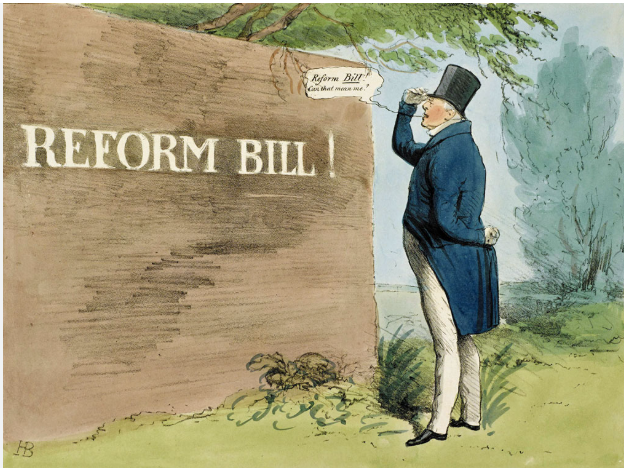 Reform Bill!?
Can that mean me?
REFORM BILL!
HB